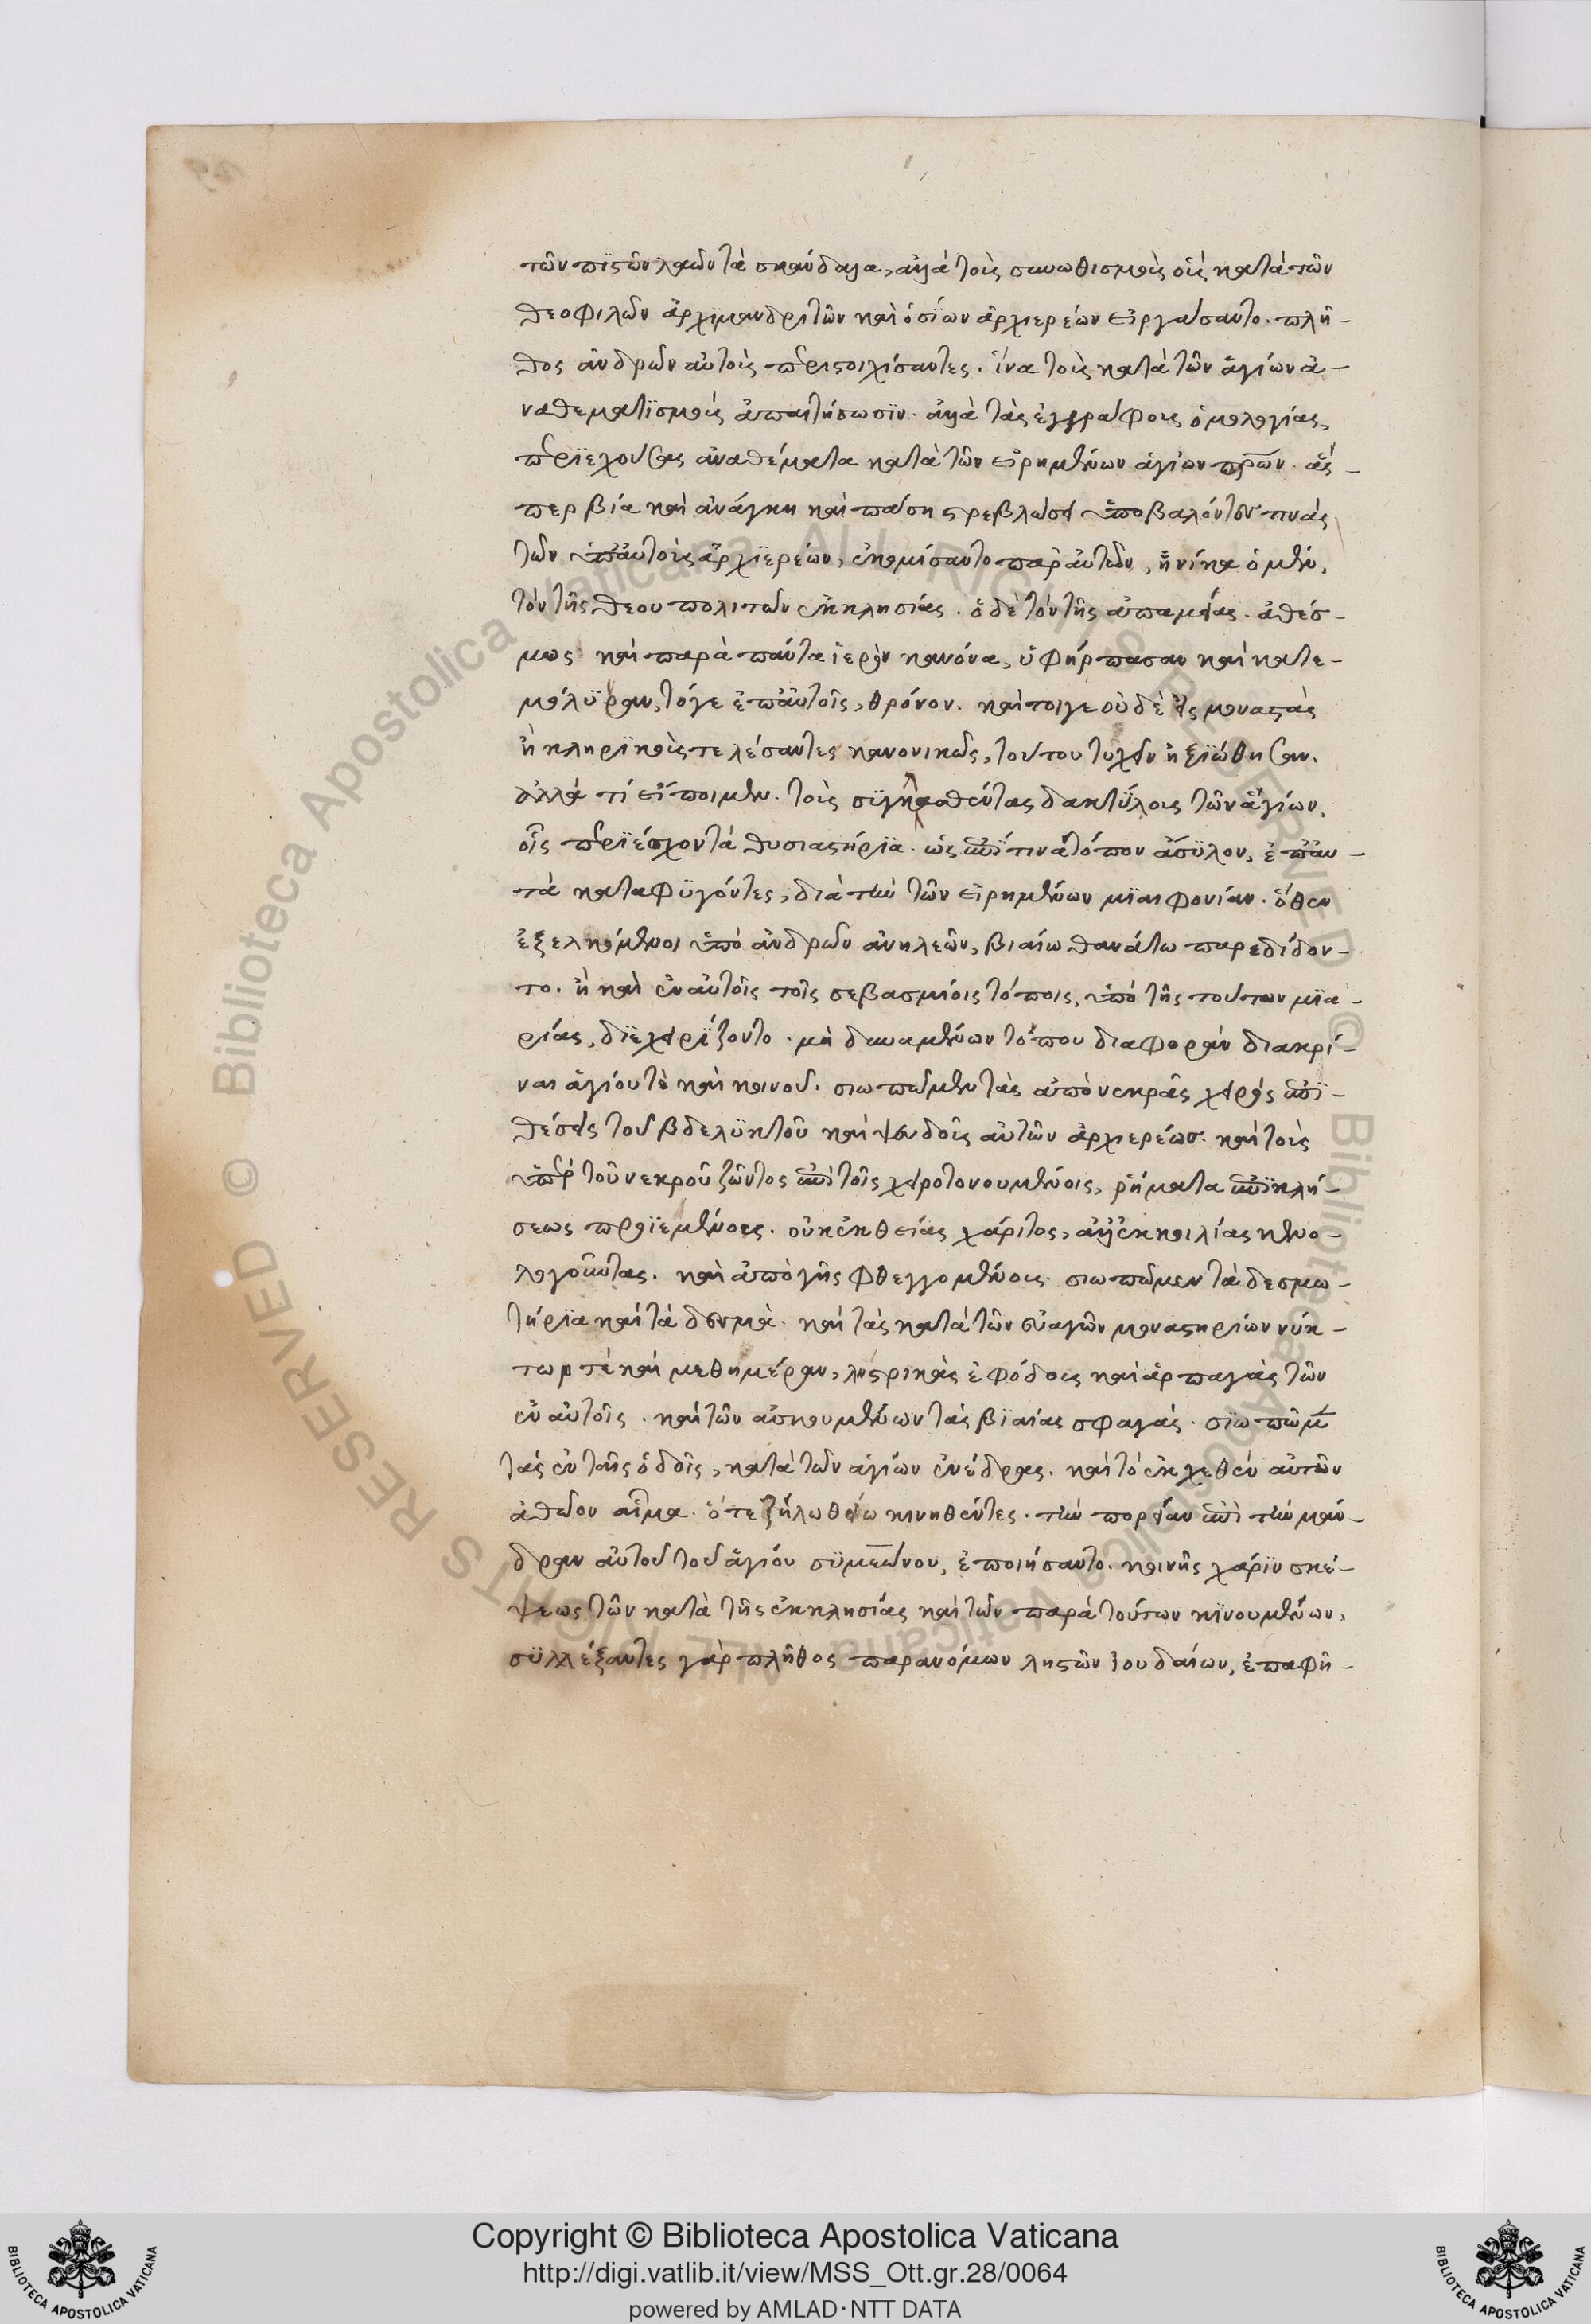 τῶν πιστῶν λαῶν τὰ σκάνδαλα, ἀλλὰ τοὺς συνωθισμοὺς οὓς κατὰ τῶν
θεοφιλῶν ἀρχιμανδριτῶν καὶ ὁσίων ἀρχιερέων εἰργάσαντο. πλῆ-
θος ἀνδρῶν αὐτοῖς περιστοιχίσαντες. ἵνα τοὺς κατὰ τῶν ἁγίων ἀ-
ναθεματισμοὺς ἀπαιτήσωσιν. ἀλλὰ τὰς ἐγγράφους ὁμολογίας,
περιεχούσας ἀναθέματα κατὰ τῶν εἰρημένων ἁγίων πρων. ἅσ-
περ βία καὶ ἀνάγκη καὶ πάση στρεβλώσει ὑποβαλόντες τινὰς
τῶν ὑπ' αὐτοὺς ἀρχιερέων, ἐκομίσαντο παρ' αὐτῶν, ἡνίκα ὁ μὲν,
τὸν τῆς θεουπολιτῶν ἐκκλησίας. ὁ δὲ τὸν τῆς ἀπαμείας. ἀθέσ-
μως καὶ παρὰ πάντα ἱερὸν κανόνα, ὑφήρπασαν καὶ κατε-
μόλυναν, τόγε ἐπ' αὐτοῖς, θρόνον. καίτοιγε οὐδὲ εἰς μοναστὰς
ἢ κληρικοὺς τελέσαντες κανονικῶς, τούτου τυχεῖν ἠξιώθησαν.
ἀλλὰ τί εἴποιμεν. τοὺς συγκοπέντας δακτύλους τῶν ἁγίων,
οἷς περιέσχον τὰ θυσιαστήρια. ὡς ἐπί τινα τόπον ἄσυλον, ἐπ' αὐ-
τὰ καταφυγόντες, διὰ τὴν τῶν εἰρημένων μιαιφονίαν. ὅθεν
ἐξελκόμενοι ὑπὸ ἀνδρῶν ἀνηλεῶν, βιαίω θανάτω παρεδίδον-
το. ἢ καὶ ἐν αὐτοῖς τοῖς σεβασμίοις τόποις, ὑπὸ τῆς τούτων μια-
ρίας, διεχειρίζοντο. μὴ δυναμένων τόπου διαφορὰν διακρῖ-
ναι ἁγίου τὲ καὶ κοινοῦ. σιωπῶμεν τὰς ἀπὸ νεκρᾶς χειρὸς ἐπι-
θέσεις τοῦ βδελυκτοῦ καὶ ψευδοῦς αὐτῶν ἀρχιερέως. καὶ τοὺς
ὑπὲρ τοῦ νεκροῦ ζῶντος ἐπὶ τοῖς χειροτονουμένοις, ῥήματα ἐπικλή-
σεως προϊεμένους. οὐκ ἐκ θείας χάριτος, ἀλλ' ἐκ κοιλίας κενο-
λογοῦντας. καὶ ἀπὸ γῆς φθεγγομένους. σιωπῶμεν τὰ δεσμω-
τήρια καὶ τὰ δεσμὰ. καὶ τὰς κατὰ τῶν εὐαγῶν μοναστηρίων νύκ-
τωρ τὲ καὶ μεθημέραν, ληστρικὰς ἐφόδους καὶ ἁρπαγὰς τῶν
ἐν αὐτοῖς. καὶ τῶν ἀσκουμένων τὰς βιαίας σφαγάς. σιωπῶμεν
τὰς ἐν ταῖς ὁδοῖς, κατὰ τῶν ἁγίων ἐνέδρας. καὶ τὸ ἐκχεθὲν αὐτῶν
ἀθῶον αἷμα. ὅτε ζήλω θείω κινηθέντες. τὴν πορείαν ἐπὶ τὴν μάν-
δραν αὐτοῦ τοῦ ἁγίου συμεώνου, ἐποιήσαντο. κοινῆς χάριν σκέ-
ψεως τῶν κατὰ τῆς ἐκκλησίας καὶ τῶν παρὰ τούτων κινουμένων,
συλλέξαντες γὰρ πλῆθος παρανόμων ληστῶν ἰουδαίων, ἐπαφῆ-